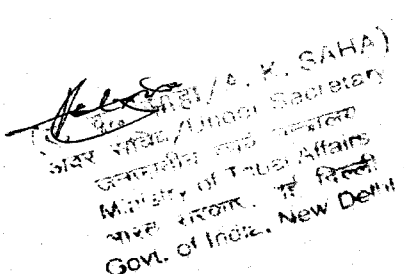 /A. K. SAHA)
अवर सचिव/Under Secretary
जनजातीय कार्य मन्त्रालय
Ministry of Tribal Affairs
भारत सरकार, नई दिल्ली
Govt. of India, New Delhi